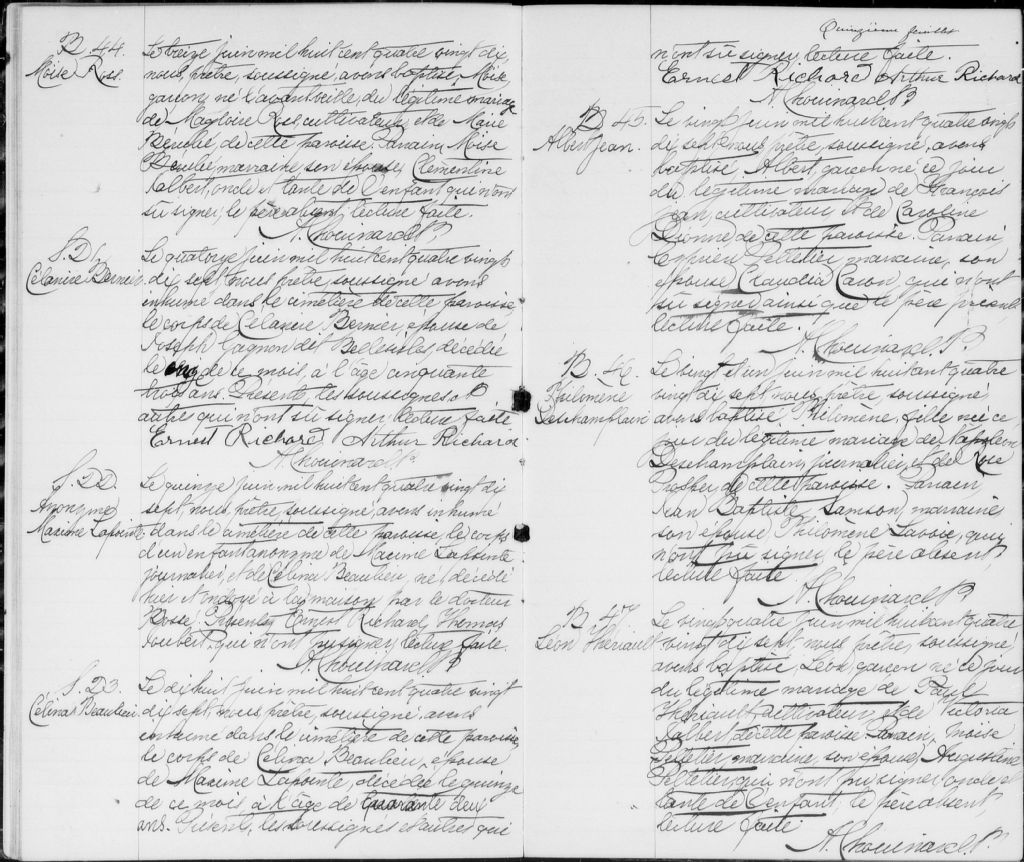 B 44.
Moise Ross.
Le treize juin mil huit cent quatre vingt dix
nous, prêtre, soussigné, avons baptisé Moise,
garçon né l'avant veille, du légitime mariage
de Magloire Ross cultivateur, et de Marie
Beaulieu, de cette paroisse. Parrain, Moise
Beaulieu, marraine, son épouse, Clémentine
Jalbert, oncle et tante de l'enfant qui n'ont
su signer, le père absent, lecture faite.
A. Chouinard P.
S. 21.
Célanire Bernier
Le quatorze juin mil huit cent quatre vingt
dix sept, nous prêtre soussigné avons
inhumé dans le cimetière de cette paroisse,
le corps de Célanire Bernier, épouse de
Joseph Gagnon dit Bellesisles, décédée
le onze de ce mois, à l'âge cinquante
trois ans. Présents, les soussignés et
autres qui n'ont su signer, lecture faite.
Ernest Richard Arthur Richard
A. Chouinard P.
S. 22.
Anonyme
Maxime Lapointe
Le quinze juin mil huit cent quatre vingt dix
sept, nous, prêtre, soussigné, avons inhumé
dans le cimetière de cette paroisse, le corps
d'un enfant anonyme de Maxime Lapointe
journalier, et de Célina Beaulieu, né décédé
hier et ondoyé à la maison par le docteur
Bossé. Présents, Ernest Richard, Thomas
Joubert, qui n'ont pu signer, lecture faite.
A. Chouinard P.
S. 23.
Célina Beaulieu.
Le dix huit juin mil huit cent quatre vingt
dix sept, nous, prêtre, soussigné, avons
inhumé dans le cimetière de cette paroisse
le corps de Célina Beaulieu, épouse
de Maxime Lapointe, décédée le quinze
de ce mois à l'âge de quarante deux
ans. Présents, les soussignés et autres qui
Quinzième feuillet
n'ont su signer, lecture faite.
Ernest Richard Arthur Richard
A. Chouinard P.
B 45.
Albert Jean.
Le vingt juin mil huit cent quatre vingt
dix sept nous prêtre, soussigné, avons
baptisé, Albert, garçon né ce jour
du légitime mariage de François
Jean, cultivateur, et de Caroline
Dionne de cette paroisse. Parrain,
Cyprien Pelletier, marraine, son
épouse Claudia Caron, qui n'ont
su signer ainsi que le père présent,
lecture faite.
A. Chouinard P.
B. 46.
Philomène
Deschamplain
Le vingt et un juin mil huit cent quatre
vingt dix sept nous, prêtre, soussigné,
avons baptisé Philomène, fille née ce
jour du légitime mariage de Napoléon
Deschamplain, journalier, et de Rose
de cette paroisse. Parrain,
Jean Baptiste Samson, marraine
son épouse Philomène Lavoie, qui
n'ont pu signer, le père absent,
lecture faite.
A. Chouinard P.
B 47
Léon Thériault
Le vingt quatre juin mil huit cent quatre
vingt dix sept, nous, prêtre, soussigné,
avons baptisé, Léon, garçon né ce jour
du légitime mariage de
Thériault, cultivateur, et de Victoria
de cette paroisse. Parrain, Moise
Pelletier, marraine, son épouse, Augustine
Pelletier, qui n'ont pu signer, oncle et
tante de l'enfant, le père absent,
lecture faite.
A. Chouinard P.